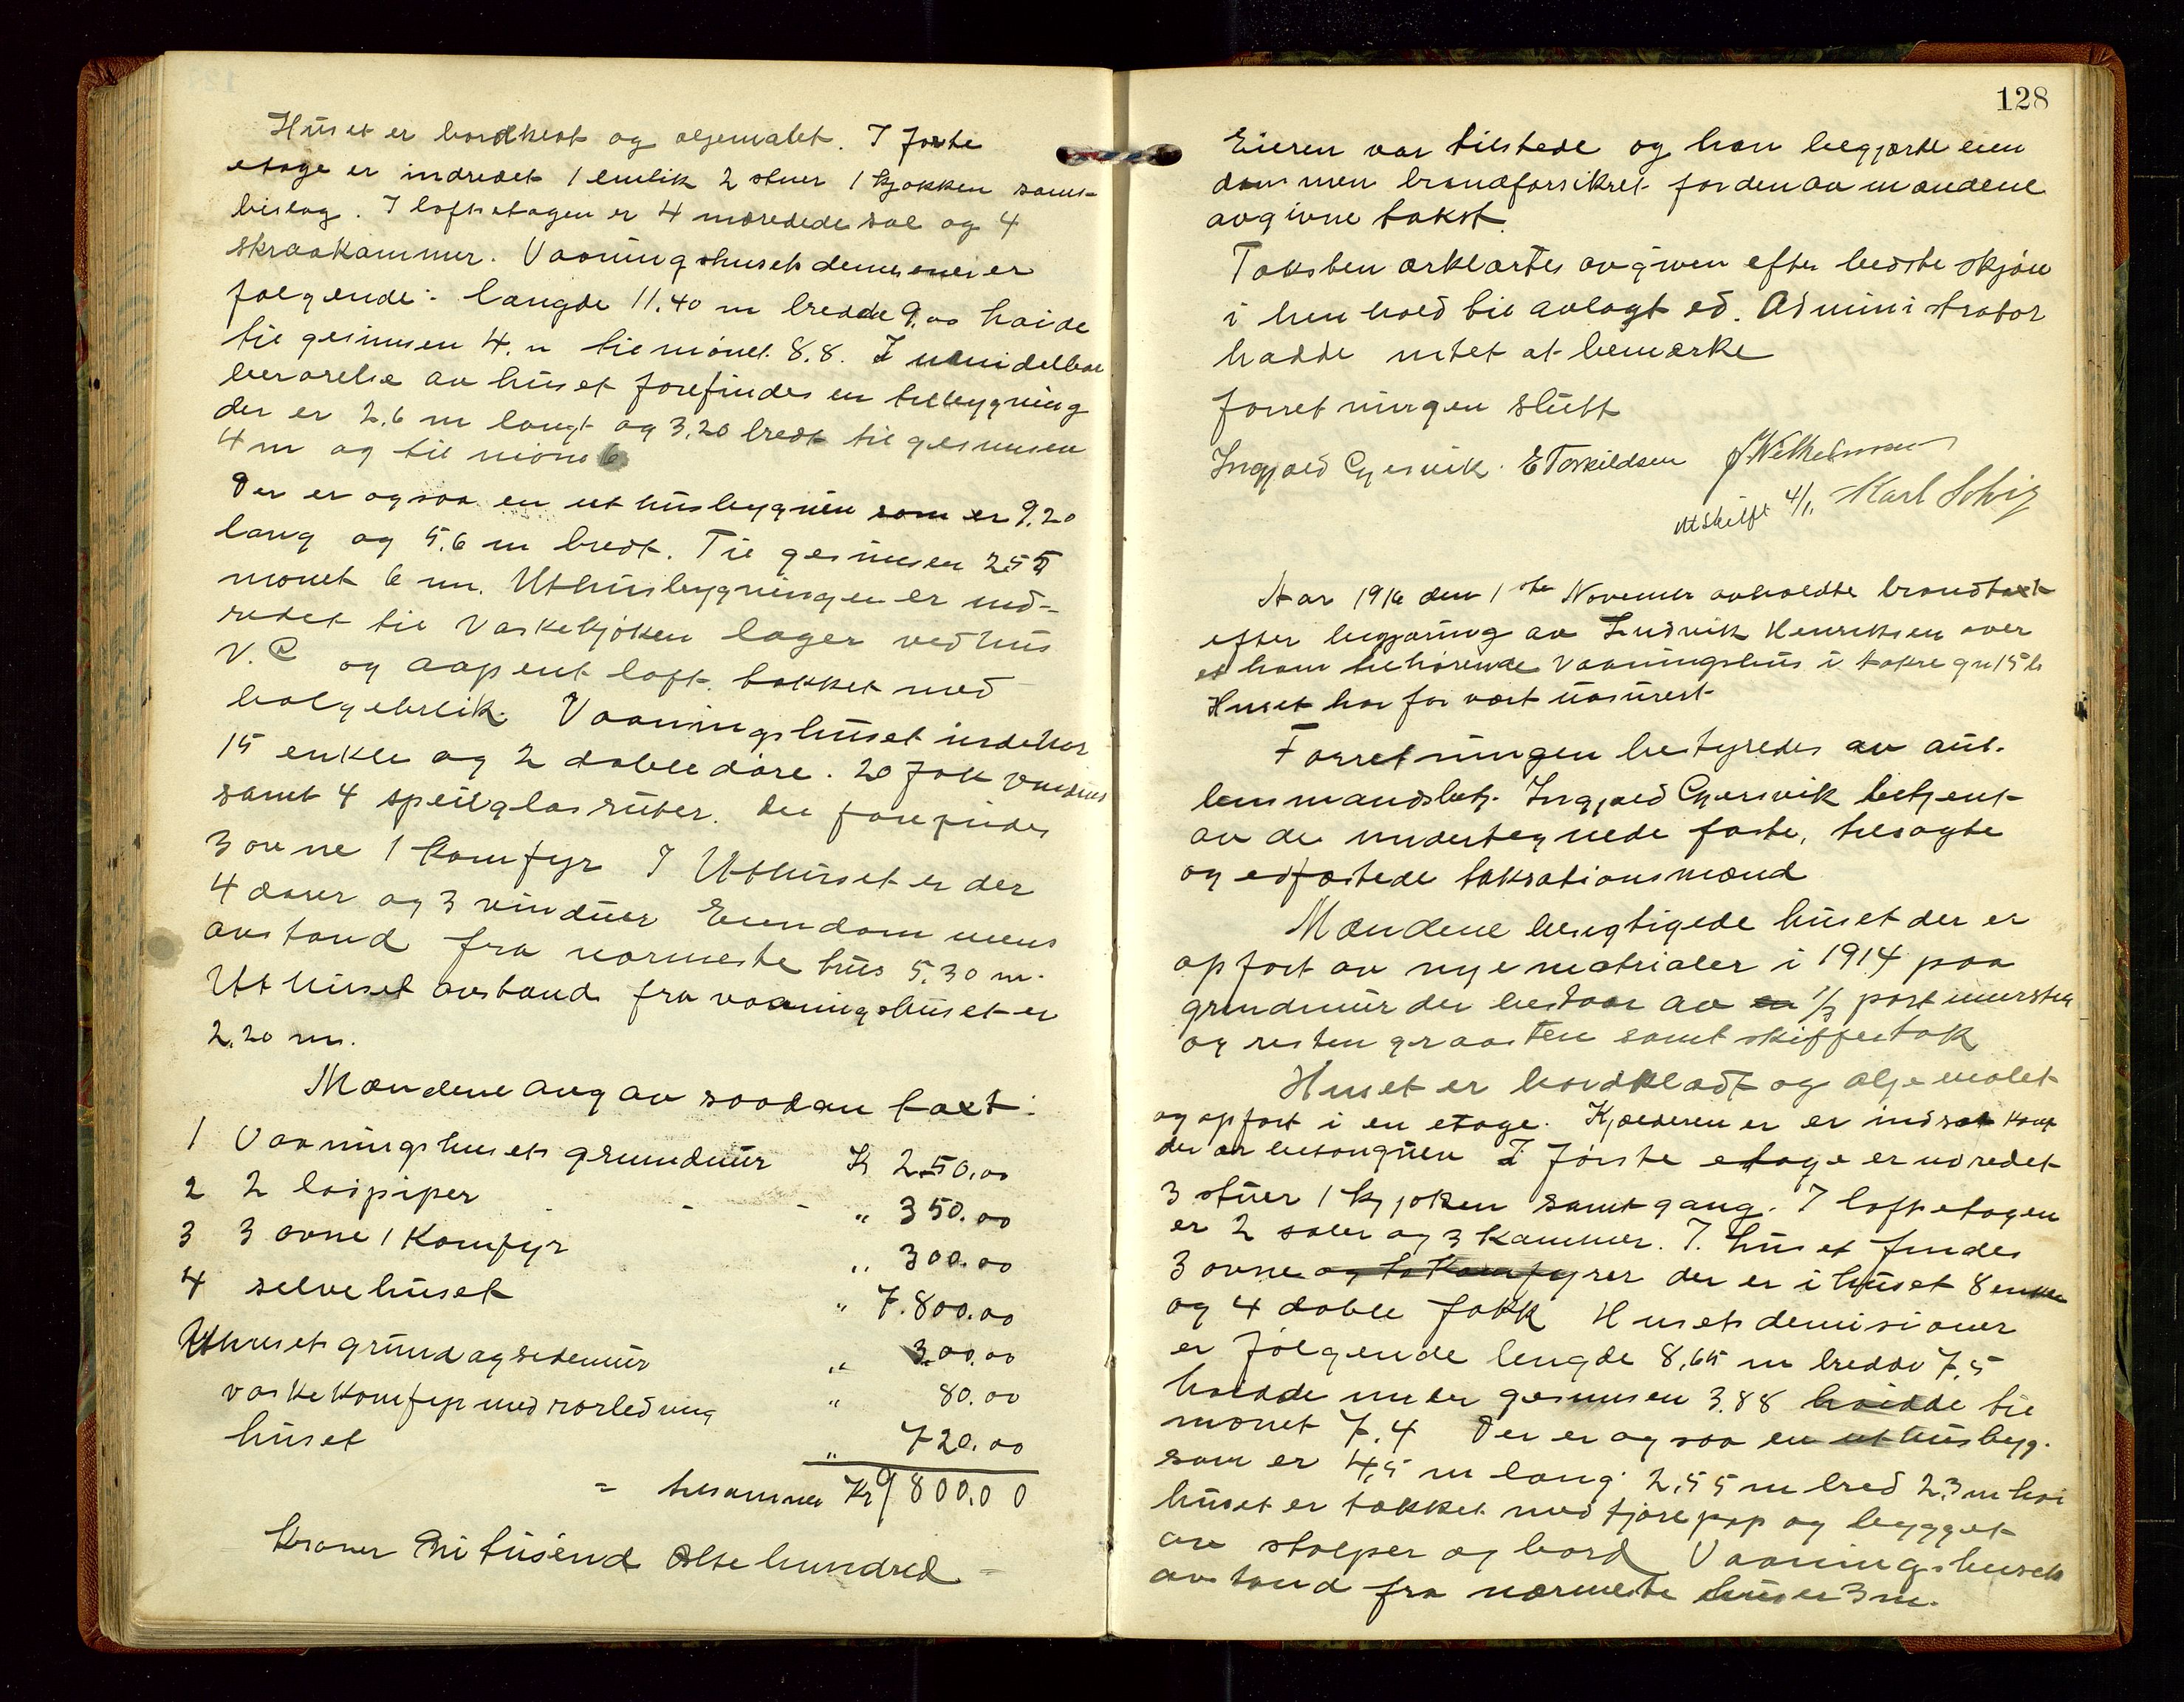 Huset er bordklædt og oljemalet. I forste
etage er indredet 1 butik 2 stuer 1 kjøkken samt
bislag. I loftsetagen er 4 møredede sal og 4
skraakammer. Vaaningshusets er
følgende: længde 11.40 m bredde 9.00 høide
til gesimsen 4. m til mønet 8.8. I umidelbar
berørelse av huset forefindes en tilbygning
der er 2.6 m langt og 3.20 bredt til gesimsen
4 m og til møne 6
Der er ogsaa en uthusbygnin som er 9.20
lang og 5.6 m bredt. Til gesimsen 255
mønet 6 m. Uthusbygningen er ind-
redet til Vaskekjøken lager vedhus
V.C og aapent loft. takket med
bølgeblik. Vaaningshuset indehar
15 enkle og 2 doble døre. 20 fak vinduer
samt 4 speilglasruter. Der forefindes
3 ovne 1 komfyr I Uthuset er der
4 dører og 3 vinduer Eiendommens
avstand fra nærmeste hus 5,30 m.
Uthuset avstand fra vaaningshuset er
2.20 m.
Mændene avgav saadan taxt:
1 Vaaningshusets grundmur Kr 250.00
2 2 løipiper - - - " 350.00
3 3 ovne 1 Komfyr " 300.00
4 selve huset " 7.800.00
Uthusets grund og sidemur " 300.00
vaske komfyr med rørledning " 80.00
huset " 720.00
= tilsammen Kr 9800.00
Kroner Ni tusend Otte hundred =
128
Eieren var tilstede og han begjærte eien
dommen brandforsikret for den av mændene
avgivne takst.
Taksten ærklærtes avgiven efter bedste skjøn
i henhold til avlagt ed. Administrator
hadde intet at bemærke
forretningen slutt
Ingjald Gjersvik. E Torkildsen J Wilhelmsen
utskrift 4/1. Karl Solvig
Aar 1916 den 1ste November avholdte brandtaxt
efter begjæring av Ludvik Henriksen over
et ham tilhørende Vaaningshus i gn 15 b
Huset har før vært uasurert
Forretningen bestyredes av aut.
lensmandsbetj. Ingjald Gjersvik betjent
av de undertegnede faste, tilsagte
og edfæstede taksationsmænd
Mændene besigtigede huset der er
opført av nye matrialer i 1914 paa
grundmur der bestaar av en 1/3 part murstein
og resten graasten samt skiffertak
Huset er bordklædt og oljemalet
og opført i en etage. Kjælderen er er indrat
der er I første etage er indredet
3 stuer 1 kjøken samt gang. I loftsetagen
er 2 saler og 3 kammer. I. huset findes
3 ovne og to Komfyrer der er i huset 8 enkle
og 4 doble fakk Husets demisioner
er følgende lengde 8,65 m bredde 7,5
høidde under gesimsen 3.88 høidde til
mønet 7.4 Der er ogsaa en uthusbyg.
som er 4,5 m lang 2,55 m bred 2.3 m høi
huset er takket med tjærepap og bygget
av stolper og bord Vaaningshusets
avstand fra nærmeste hus er 3 m.